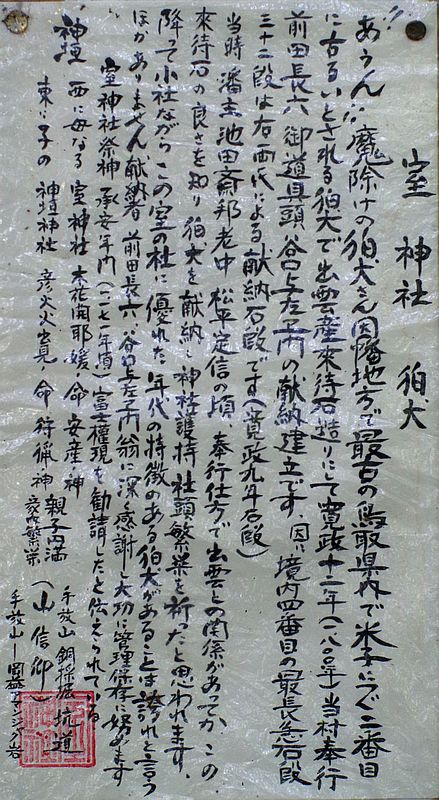 室神社 狛犬
あうん 魔除けの狛犬さん 因幡地方で最古の鳥取県内で米子につぐ二番目
に古るいとされる狛犬で出雲産来待石造りにして寛政十二年(一八〇〇年)当村奉行
前田長六 御道具頭 谷口与左エ門の献納建立です。因に境内四番目の最長急石段
三十二段は右両氏による献納石段です(寛政九年石段)
当時 藩主池田斎邦老中 松平定信の頃 奉行仕方で出雲との関係があってか この
来待石の良さを知り狛犬を献納し神社護持社頭繁栄を祈ったと思われます、
降って小社ながらこの室の杜に優れた年代の特徴のある狛犬があることは誇れと言う
ほかありません 献納者 前田長六 谷口与左エ門翁に深く感謝し大切に管理保存に努めます
室神社祭神 承安年間(一一七一年頃)富士権現を勧請したと伝えられている
神垣 西に母なる 室神社 木花開耶媛命 安産の神
東に子の 神垣神社 彦火火出見命 狩猟神
親子円満
家内繁栄
(山信仰)
手放山 銅採掘坑道
手放山 岡益